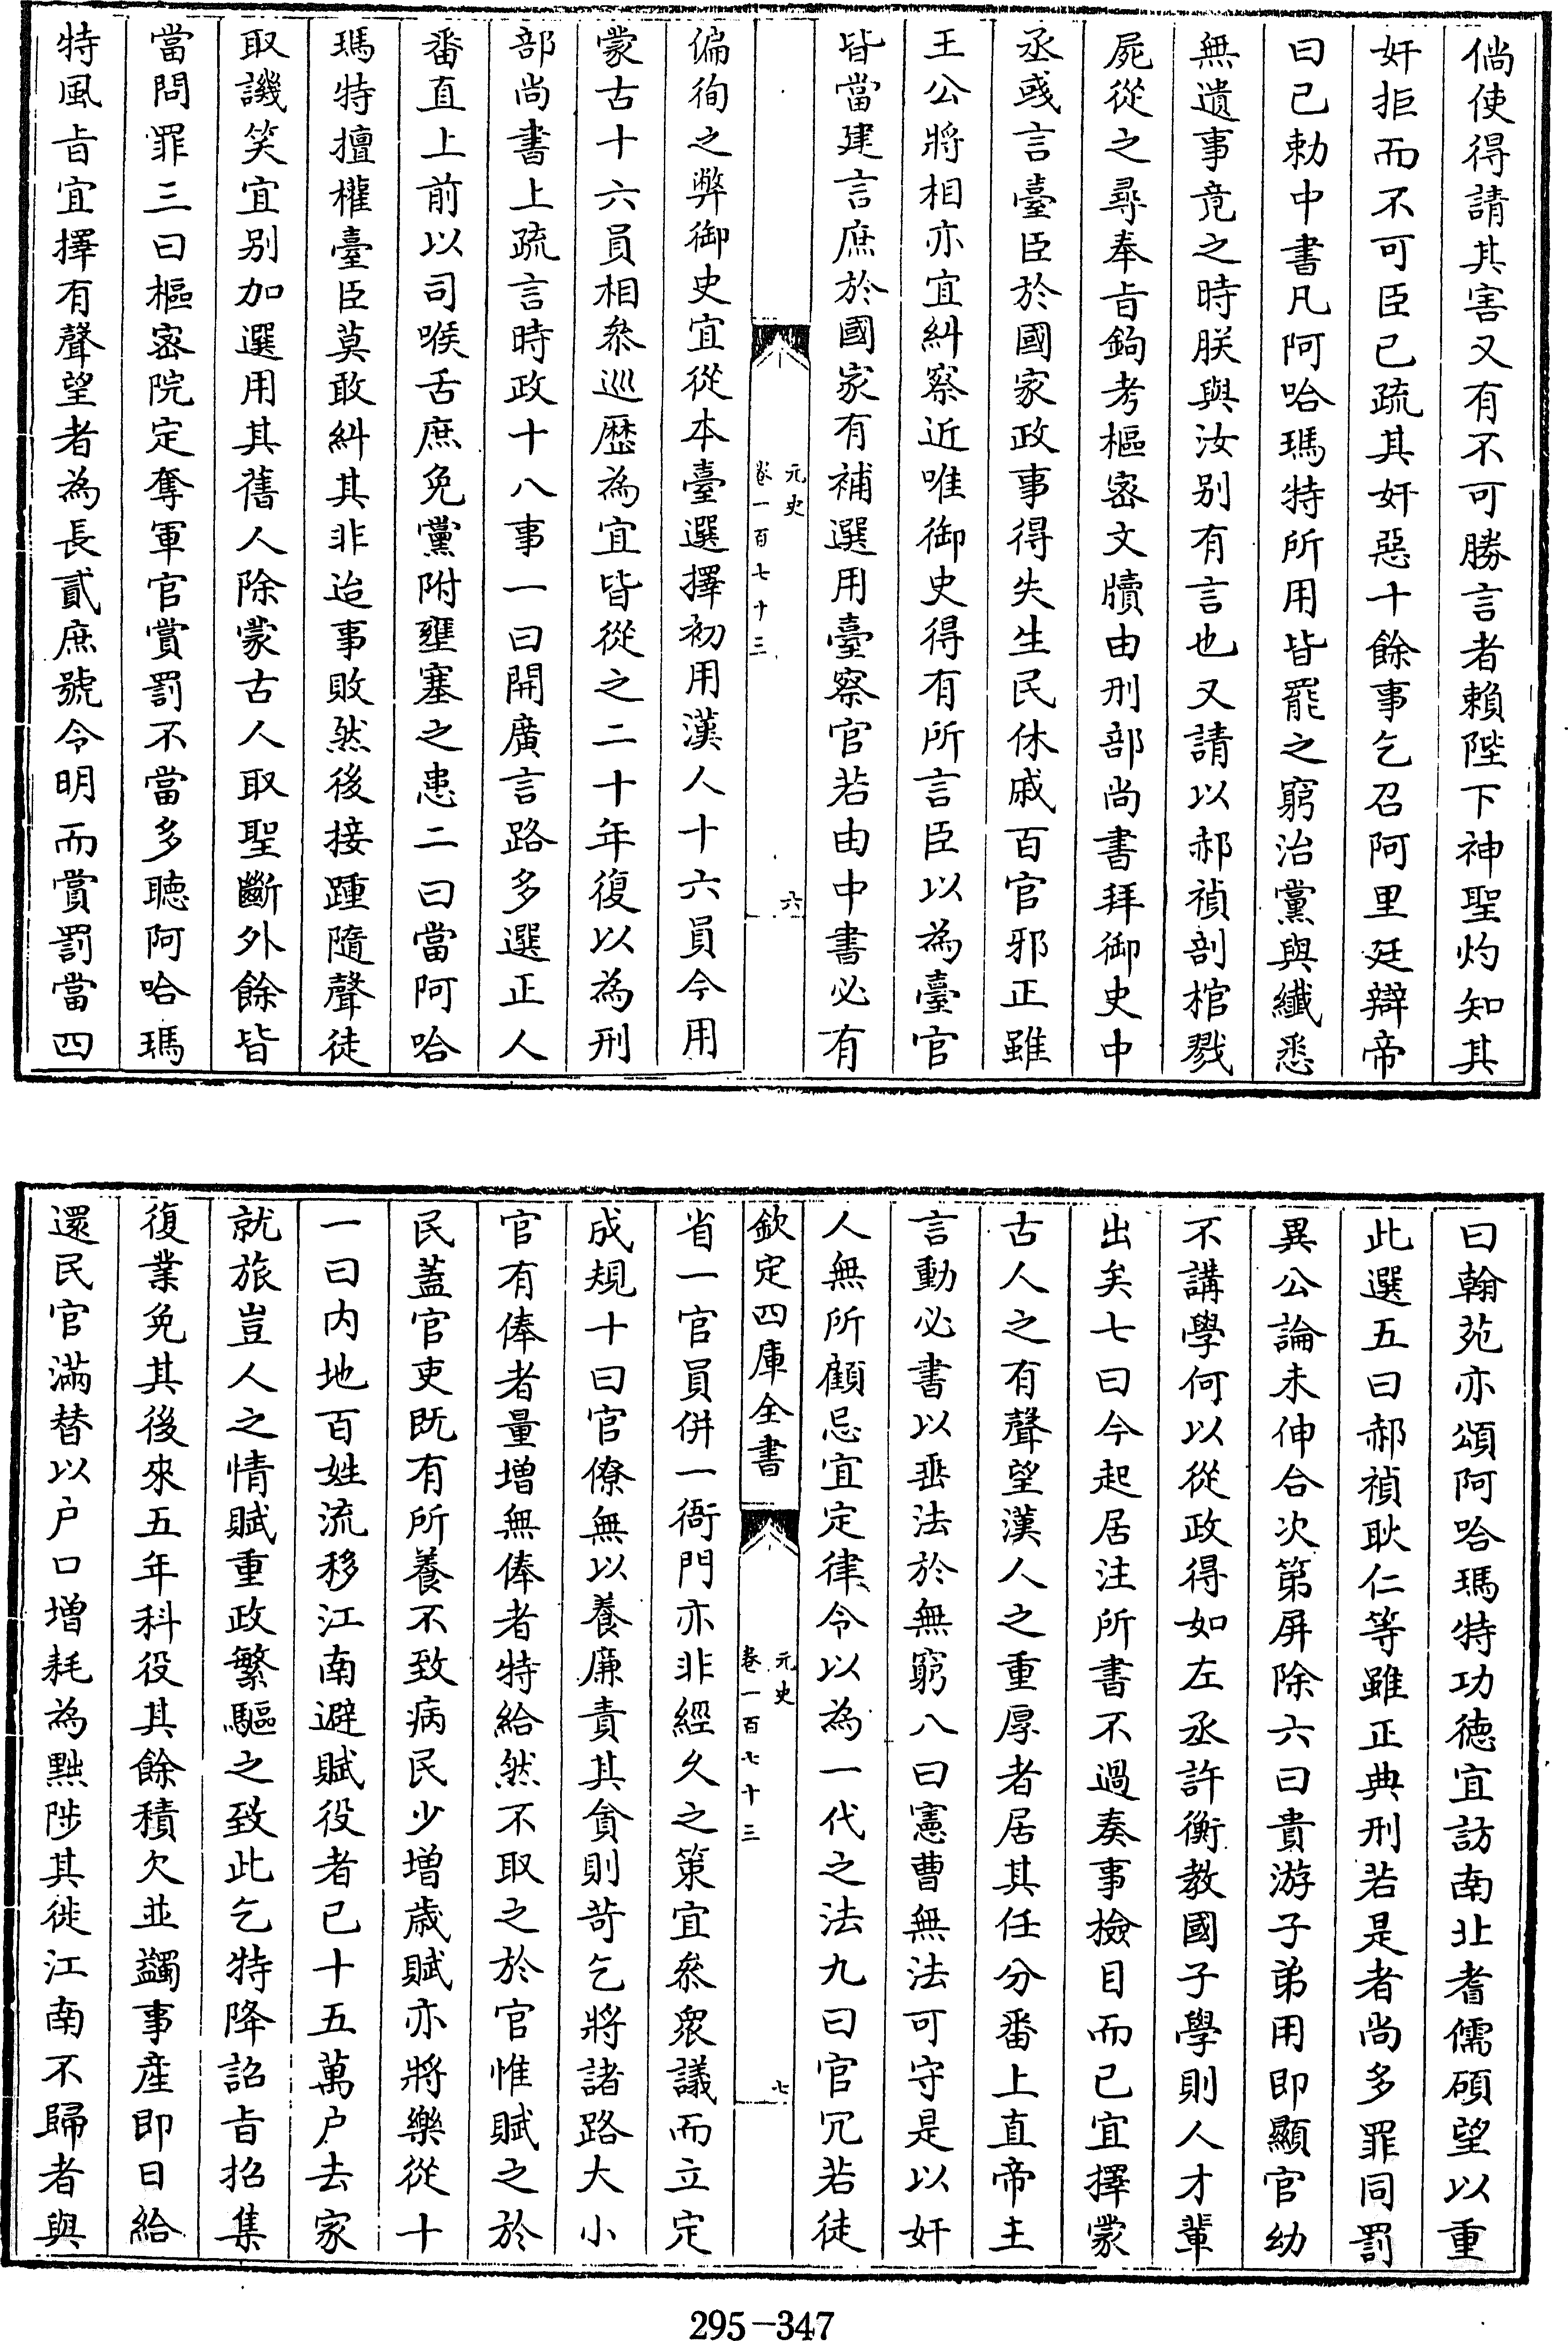 倘使得請其害又有不可勝言者賴陛下神聖灼知其
奸拒而不可臣已疏其奸惡十餘事乞召阿里廷辯帝
曰已勅中書凡阿哈瑪特所用皆罷之窮治黨與纖悉
無遺事竟之時朕與汝别有言也又請以郝禎剖棺戮
屍從之尋奉旨鉤考樞密文牘由刑部尚書拜御史中
丞彧言臺臣於國家政事得失生民休戚百官邪正雖
王公將相亦宜糾察近唯御史得有所言臣以為臺官
皆當建言庶於國家有補選用臺察官若由中書必有
元史
卷一百七十三
六
偏徇之弊御史宜從本臺選擇初用漢人十六員今用
蒙古十六員相叅巡歷為宜皆從之二十年復以為刑
部尚書上疏言時政十八事一曰開廣言路多選正人
番直上前以司喉舌庶免黨附壅塞之患二曰當阿哈
瑪特擅權臺臣莫敢糾其非迨事敗然後接踵隨聲徒
取譏笑宜别加選用其舊人除蒙古人取聖斷外餘皆
當問罪三曰樞密院定奪軍官賞罰不當多聽阿哈瑪
特風旨宜擇有聲望者為長貳庶號令明而賞罰當四
曰翰苑亦頌阿哈瑪特功德宜訪南北耆儒碩望以重
此選五曰郝禎耿仁等雖正典刑若是者尚多罪同罰
異公論未伸合次第屏除六曰貴游子弟用即顯官幼
不講學何以從政得如左丞許衡教國子學則人才輩
出矣七曰今起居注所書不過奏事檢目而已宜擇蒙
古人之有聲望漢人之重厚者居其任分番上直帝主
言動必書以垂法於無窮八曰憲曹無法可守是以奸
人無所顧忌宜定律令以為一代之法九曰官冗若徒
欽定四庫全書
元史
卷一百七十三
七
省一官員併一衙門亦非經久之策宜叅衆議而立定
成規十曰官僚無以養廉責其貪則苛乞將諸路大小
官有俸者量增無俸者特給然不取之於官惟賦之於
民蓋官吏既有所養不致病民少增歲賦亦將樂從十
一曰内地百姓流移江南避賦役者已十五萬户去家
就旅豈人之情賦重政繁驅之致此乞特降詔旨招集
復業免其後來五年科役其餘積欠並蠲事産即日給
還民官滿替以户口增耗為黜陟其徙江南不歸者與
295-347